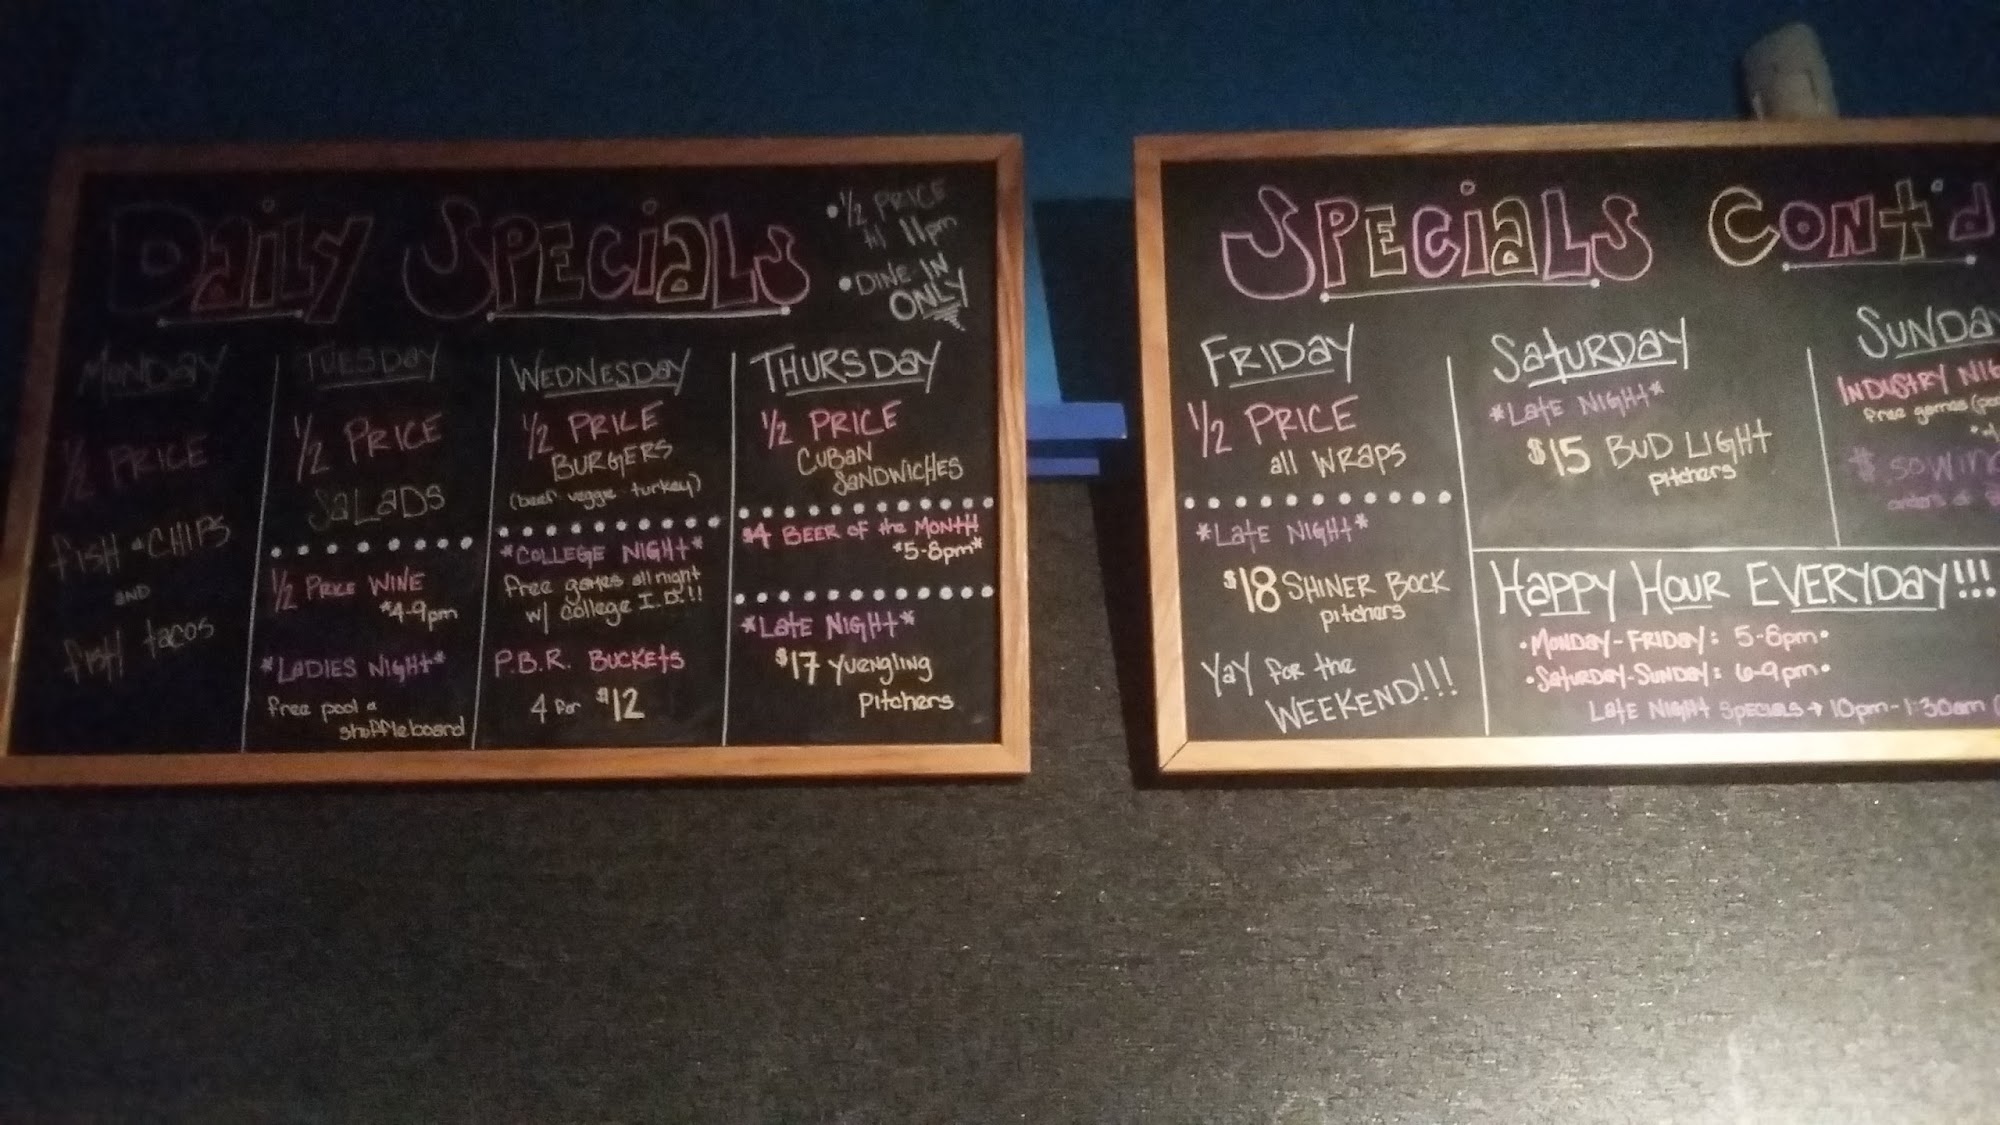 Daily Specials
• 1/2 PRICE
til 11pm
• DINE-IN
ONLY
MONDAY
1/2 PRICE
fish & CHIPS
AND
fish tacos
TUESDAY
1/2 PRICE
SALADS
1/2 PRICE WINE
*4-9pm
*LADIES NIGHT*
free pool &
shuffleboard
WEDNESDAY
1/2 PRICE
BURGERS
(beef · veggie · turkey)
*COLLEGE NIGHT*
free games all night
w/ college I.D.!!
P.B.R. BUCKETS
4 for $12
THURSDAY
1/2 PRICE
CUBAN
SANDWICHES
$4 BEER OF the MONTH
*5-8pm*
*LATE NIGHT*
$17 Yuengling
Pitchers
Specials Cont'd
FRIDAY
1/2 PRICE
all WRAPS
*LATE NIGHT*
$18 SHINER BOCK
pitchers
Yay for the
WEEKEND!!!
SATURDAY
*LATE NIGHT*
$15 BUD LIGHT
pitchers
SUNDAY
INDUSTRY NIG
free games
HAPPY HOUR EVERYDAY!!!
• MONDAY-FRIDAY: 5-8pm •
• SATURDAY-SUNDAY: 6-9pm •
LATE NIGHT SPECIALS → 10pm-1:30am